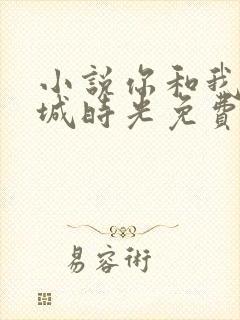 小説你和我
城時光免費
易容術